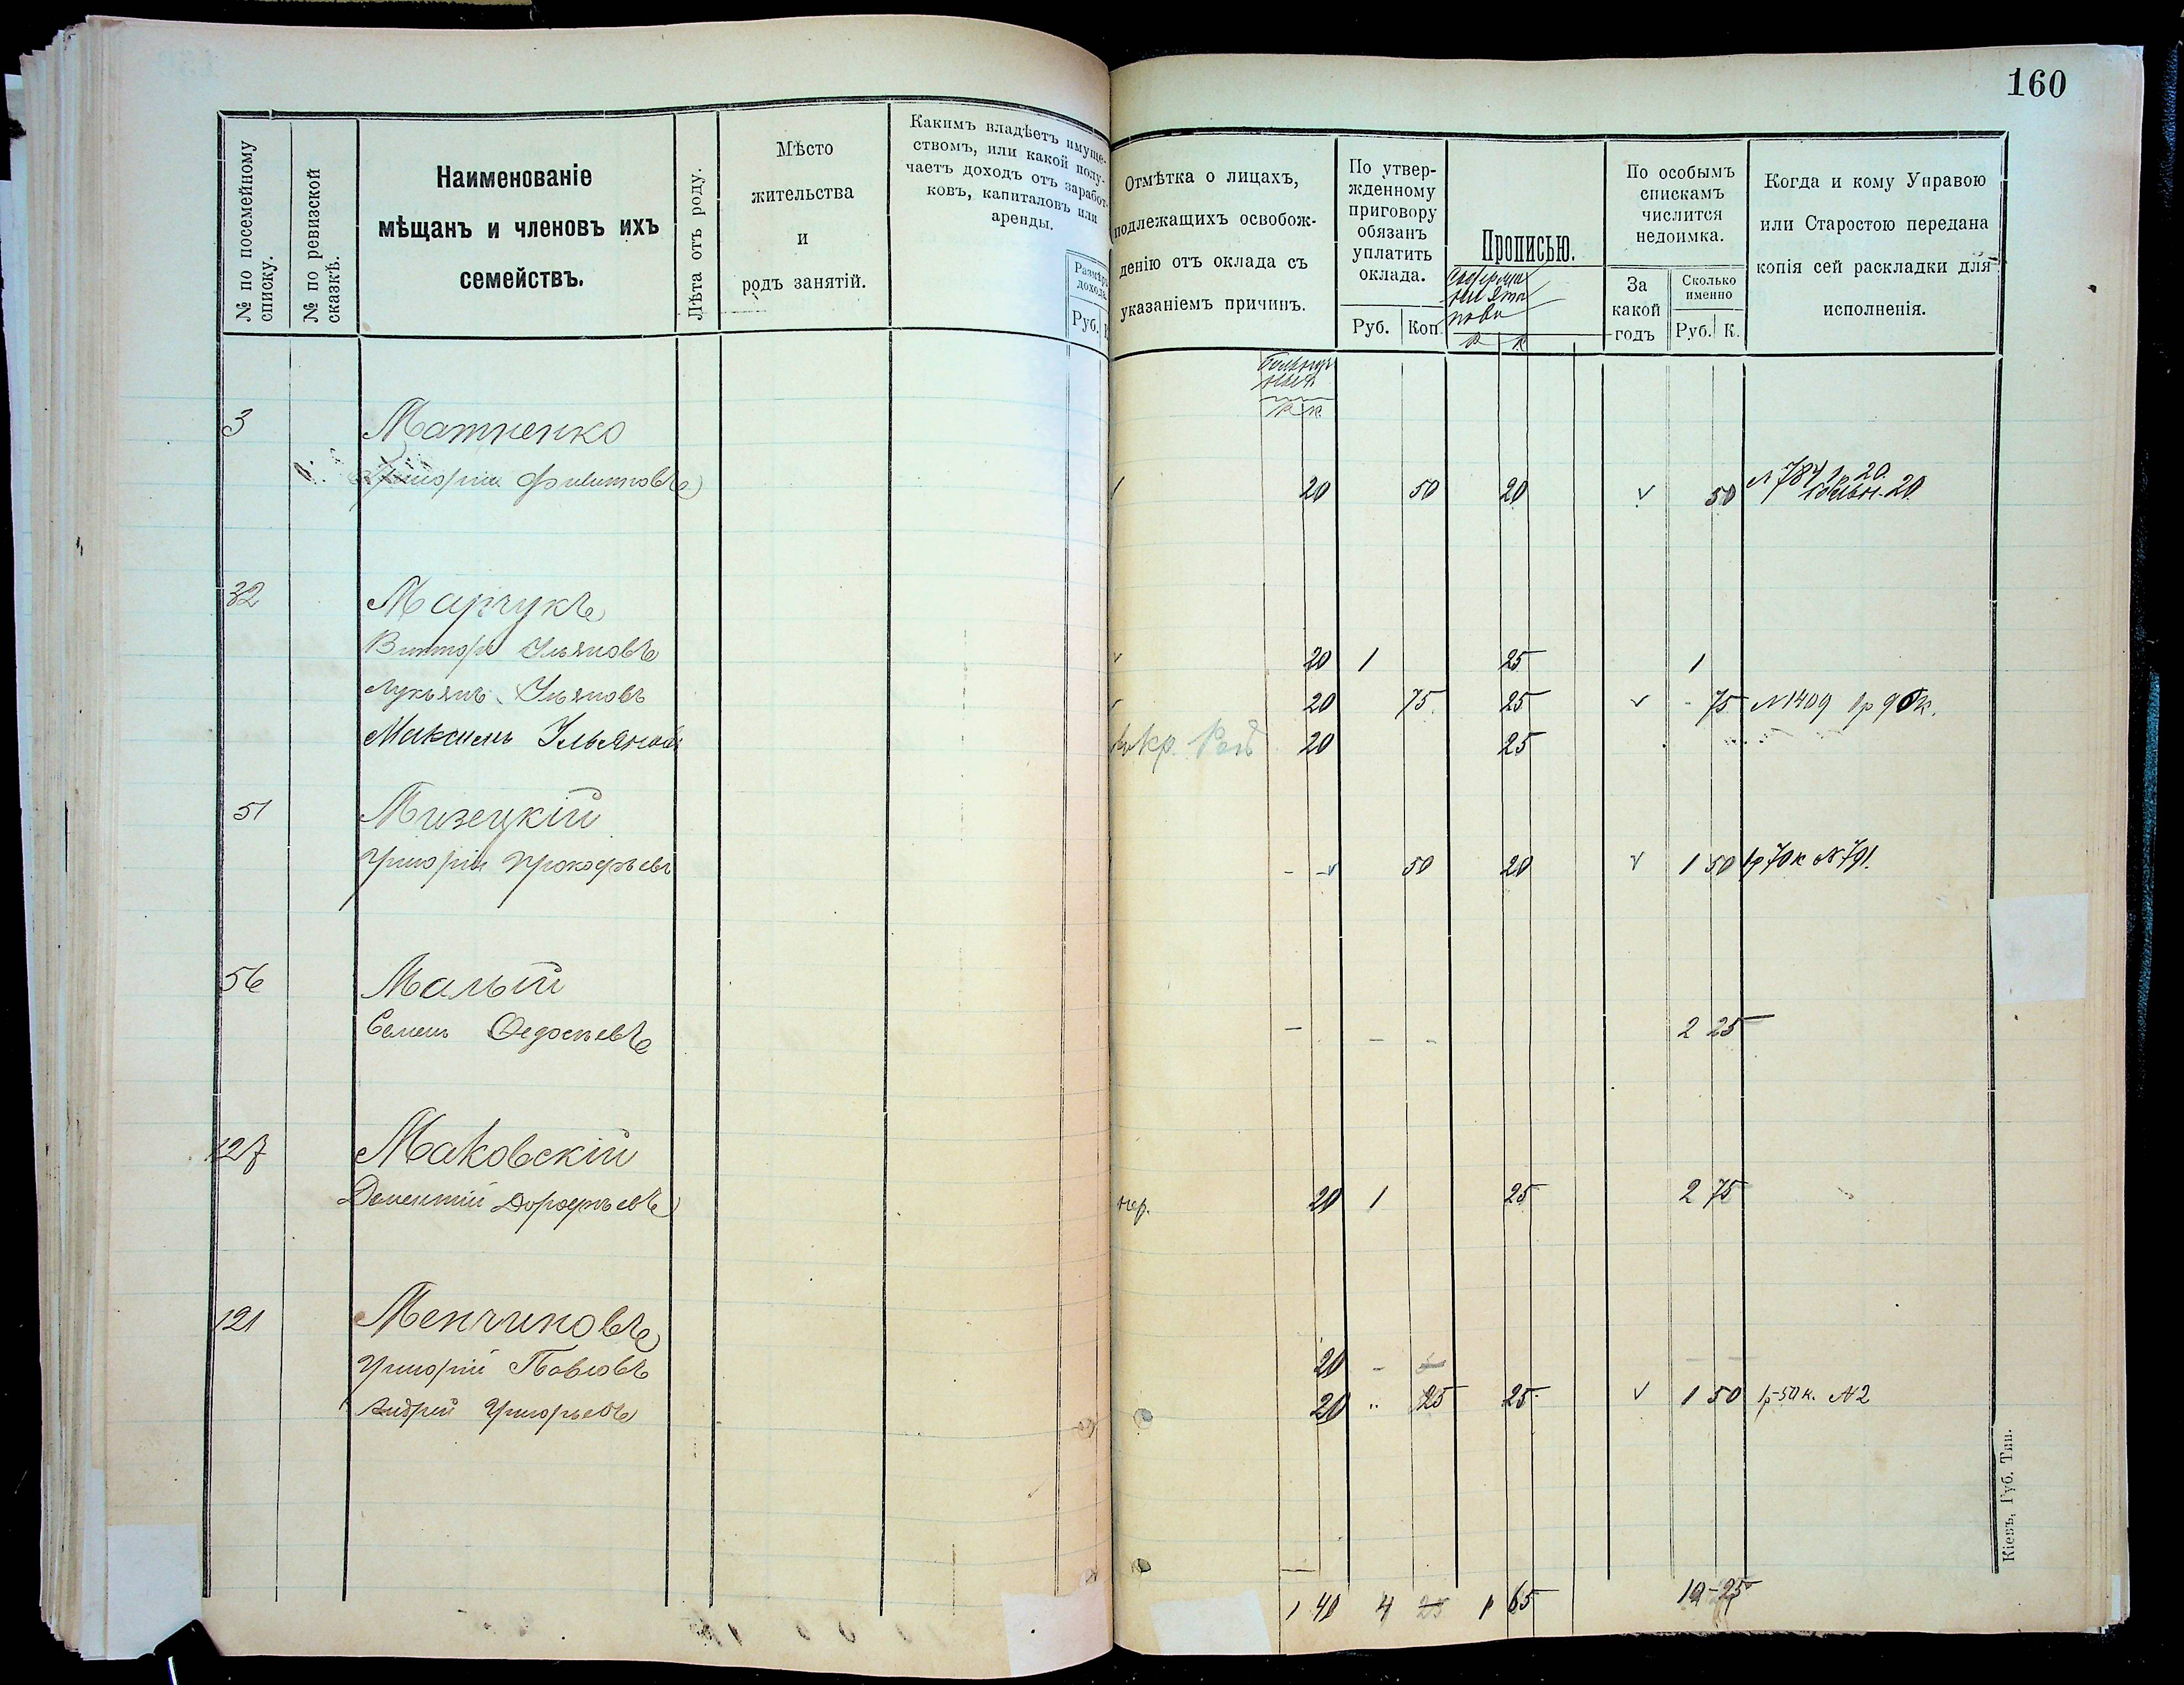 160
№ по посемейному
списку.
№ по ревизской
сказкѣ.
Наименованіе
мѣщанъ и членовъ ихъ
семействъ.
Лѣта отъ роду.
Мѣсто
жительства
и
родъ занятій.
Какимъ владѣетъ имуще-
ствомъ, или какой полу-
чаетъ доходъ отъ заработ-
ковъ, капиталовъ или
аренды.
Размѣръ
дохода.
Руб.
Отмѣтка о лицахъ,
подлежащихъ освобож-
денію отъ оклада съ
указаніемъ причинъ.
По утвер-
жденному
приговору
обязанъ
уплатить
оклада.
Руб. Коп.
Прописью.
По особымъ
спискамъ
числится
недоимка.
За
какой
годъ
Сколько
именно
Руб. К.
Когда и кому Управою
или Старостою передана
копія сей раскладки для
исполненія.
р к
р к
3 Матненко
Филиповъ 20 50 20 50 N 784 1р 20
32 Марчукъ
Викторъ Ульяновъ 20 1 25 1
Лукьянъ Ульяновъ 20 75 25 75 N 1409 1р 90к.
Максимъ Ульяновъ 20 25
51 Мизецкій
Григорій Прокофьевъ 50 20 1 50 1р 70к N 791.
56 Малый
Семенъ Федосьевъ 2 25
127 Маковскій
Дементій Дорофѣевъ 20 1 25 2 75
121 Менчиновъ
Григорій Павловъ 20
Андрей Григорьевъ 20 25 25 1 50 1р-50к. N 2
1 40 4 25 1 65 10-25
Кіевъ, Губ. Тип.